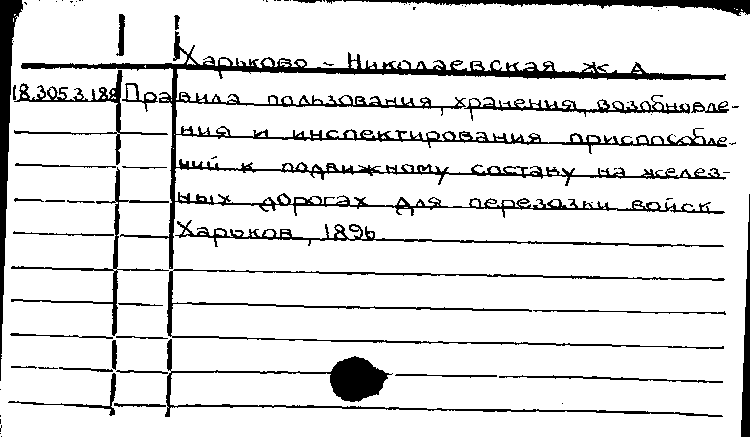 Харьково - Николаевская ж. д.
18.305.3.188 Правила пользования, хранения, возобновле-
ния и инспектирования приспособле-
ний к подвижному составу на желез-
ных дорогах для перевозки войск
Харьков, 1896